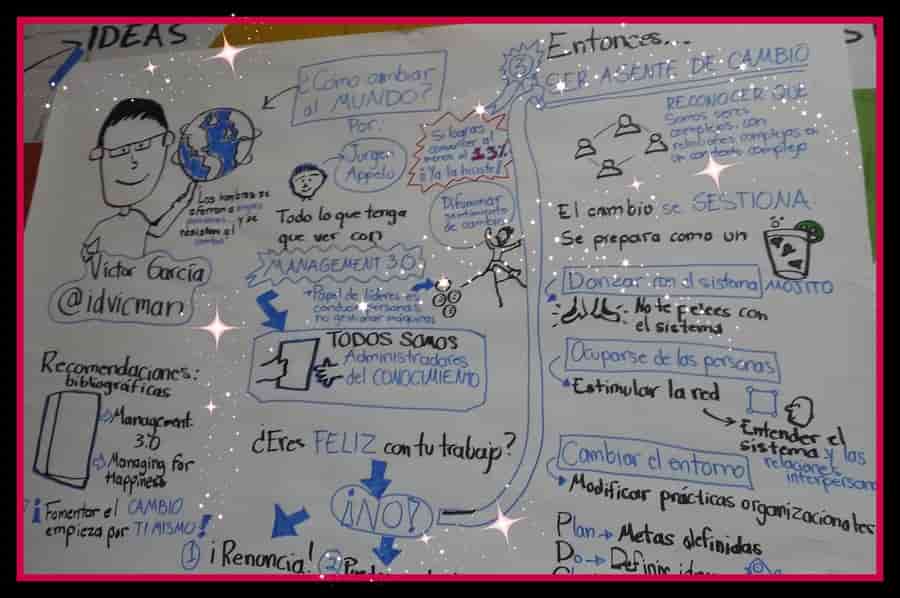 IDEAS
¿Cómo cambiar
al MUNDO?
Por:
Jurgen
Appelo
Si logras
convertir al
menos al 13%
¡Ya la hiciste!
Los hombres se
aferran a
y se
resisten al
cambio
Víctor García
@idvicman
Todo lo que tenga
que ver con
MANAGEMENT 3.0
Papel de líderes es
conducir personas
no gestionar máquinas
Difuminar
sentimiento
de cambio
TODOS SOMOS
Administradores
del CONOCIMIENTO
Recomendaciones:
bibliográficas
Management
3.0
Managing for
Happiness
¡Fomentar el CAMBIO
empieza por TI MISMO!
¿Eres FELIZ con tu trabajo?
¡NO!
1 ¡Renuncia!
2
3
Entonces...
SER AGENTE DE CAMBIO
RECONOCER QUE
Somos seres
complejos, con
relaciones complejas en
un contexto complejo
El cambio se GESTIONA
Se prepara como un
MOJITO
Danzar con el sistema
No te pelees con
el sistema
Ocuparse de las personas
Estimular la red
Entender el
sistema y las
relaciones
interpersona
Cambiar el entorno
Modificar prácticas organizacionales
Plan → Metas definidas
Do → Definir ideas